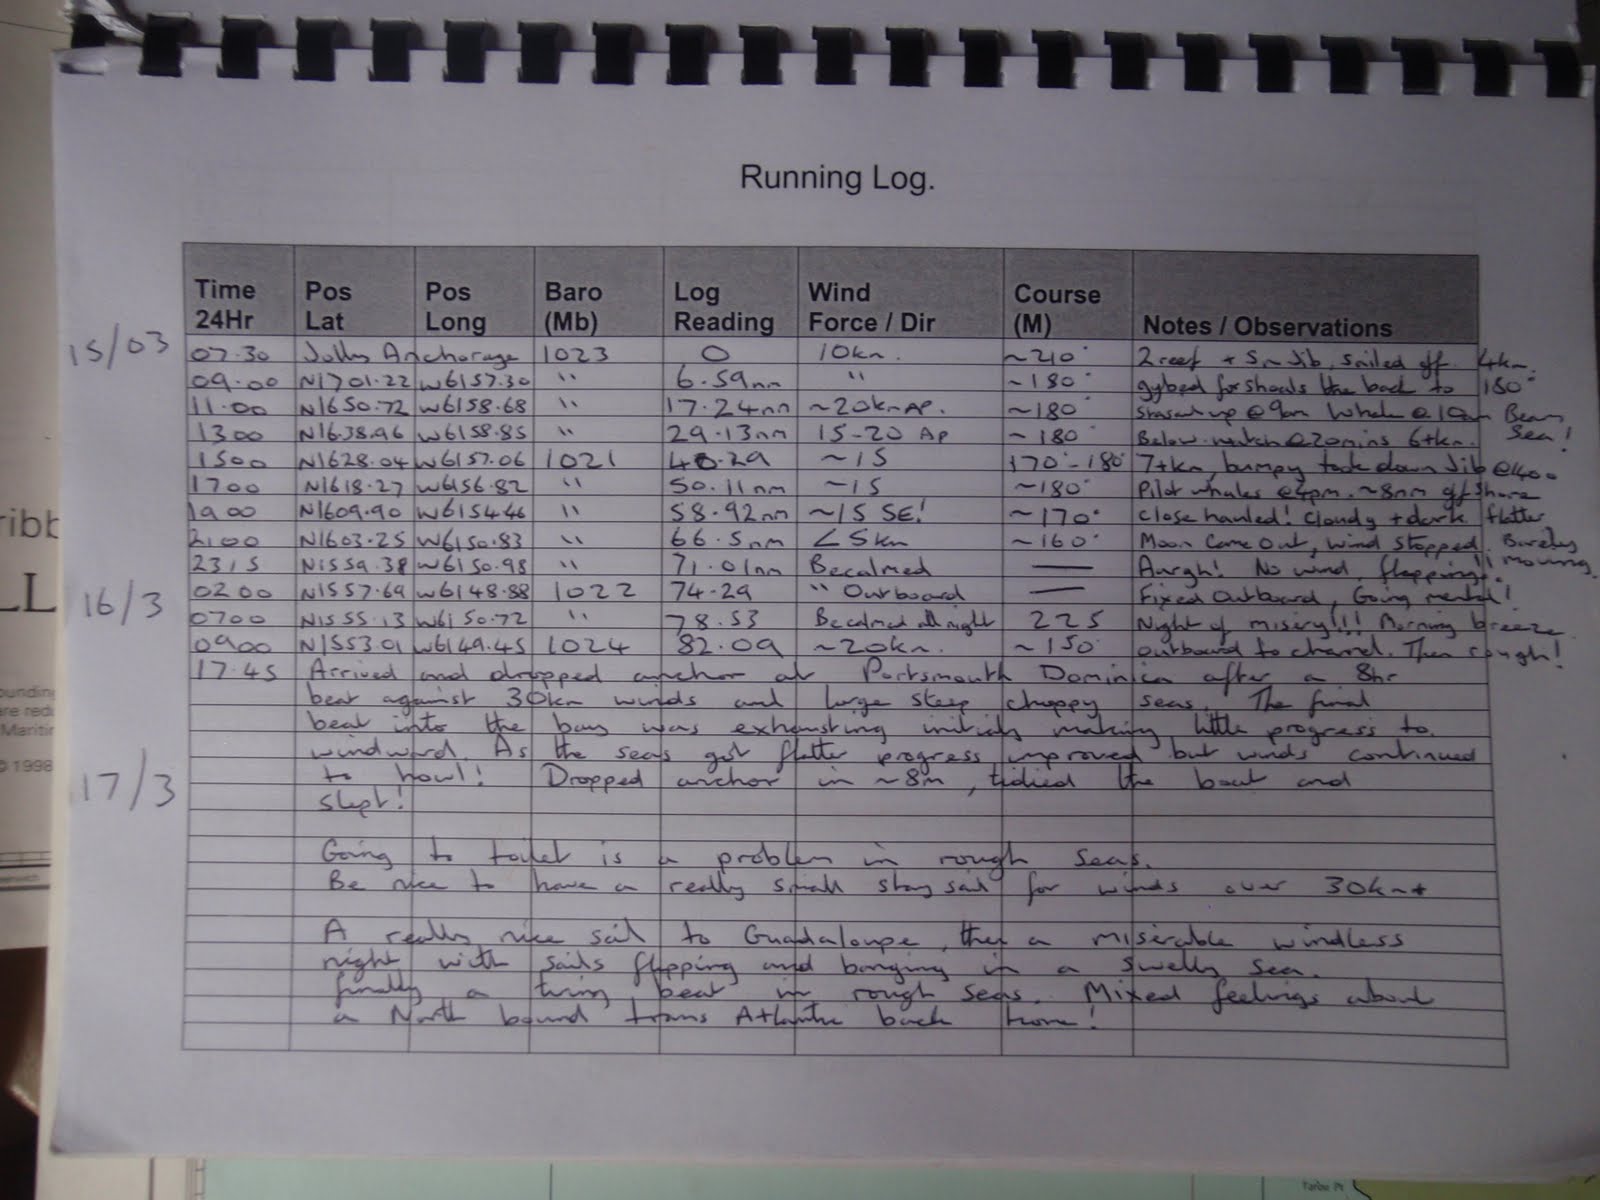 Running Log.
Time 24Hr Pos Lat Pos Long Baro (Mb) Log Reading Wind Force / Dir Course (M) Notes / Observations
15/03 07.30 Jolly Anchorage 1023 0 10kn. ~210° 2 reef + Sm Jib, sailed off. 4kn.
09.00 N1701.22 W6157.30 " 6.59nm " ~180° gybed for shoals the back to 180°
11.00 N1650.72 W6158.68 " 17.24nm ~20kn Ap. ~180° up @ 9am Whale @ 10am Beam Sea!
1300 N1638.96 W6158.85 " 29.13nm 15-20 Ap ~180° Below watch @ 20mins 6+kn.
1500 N1628.04 W6157.06 1021 40.29 ~15 170°-180° 7+kn, bumpy took down Jib @1400
1700 N1618.27 W6156.82 " 50.11nm ~15 ~180° Pilot whales @ 4pm. ~8nm offshore
1900 N1609.90 W6154.46 " 58.92nm ~15 SE! ~170° close hauled! Cloudy + dark flatter
2100 N1603.25 W6150.83 " 66.5nm <5kn ~160° Moon came out, wind stopped. Barely moving.
2315 N1559.38 W6150.98 " 71.01nm Becalmed — Aargh! No wind, flapping!
16/3 0200 N1557.69 W6148.88 1022 74.29 " Outboard — Fixed Outboard, Going mental!
0700 N1555.13 W6150.72 " 78.53 Becalmed all night 225 Night of misery!!! Morning breeze
0900 N1553.01 W6149.45 1024 82.09 ~20kn. ~150° outboard to channel. Then rough!
17.45 Arrived and dropped anchor at Portsmouth Dominica after a 8hr
beat against 30kn winds and large steep choppy seas. The final
beat into the bay was exhausting initially making little progress to
windward. As the seas got flatter progress improved but winds continued
17/3 to howl! Dropped anchor in ~8m, tidied the boat and
slept!
Going to toilet is a problem in rough seas.
Be nice to have a really small stay sail for winds over 30kn+
A really nice sail to Guadaloupe, then a miserable windless
night with sails flapping and banging in a swelly sea.
finally a tiring beat in rough seas. Mixed feelings about
a North bound trans Atlantic back home!
ribb
LL
ounding
are red
Maritir
© 1998